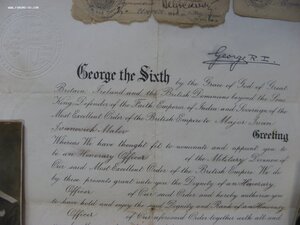 George R.I.
George the Sixth by the Grace of God of Great
Britain, Ireland and the British Dominions beyond the Seas
King, Defender of the Faith, Emperor of India and Sovereign of the
Most Excellent Order of the British Empire to Major Ivan
Ivanovich
Greeting
Whereas We have thought fit to nominate and appoint you to
be an Honorary Officer of the Military Division of
Our said Most Excellent Order of the British Empire We do
by these presents grant unto you the Dignity of an Honorary
Officer of Our said Order and hereby authorise you
to have hold and enjoy the said Dignity and Rank of an Honorary
Officer of Our aforesaid Order together with all and